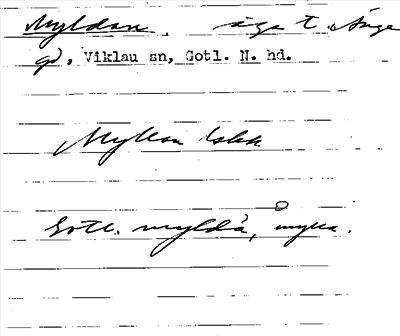 Myldan. äga t. Ånge
gd, Viklau sn, Gotl. N. hd.
Myllan
Gotl. myldå, mylla.